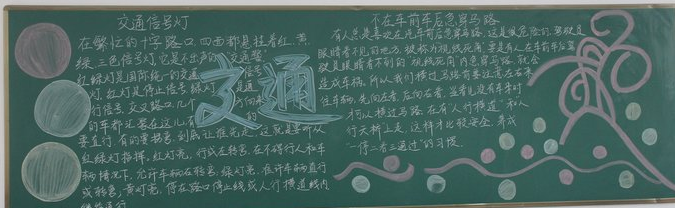 交通信号灯
在繁忙的十字路口，四面都悬挂着红、黄、
绿、三色信号灯，它是不出声的"交通警"
红绿灯是国际统一的交通信号
灯，红灯是停止信号，绿灯是通
行信号，交叉路口，几个方向来
的车都汇聚在这儿，有的
要直行，有的要拐弯，到底让谁先走，这就是要听从
红绿灯指挥。红灯亮，行或左转弯，在不碍行人和车
辆情况下，允许车辆右转弯，绿灯亮，准许车辆直行
或转弯，黄灯亮，停在路口停止线或人行横道线内
继续通行
交通
不在车前车后急穿马路
有人总是喜欢在汽车前后急穿马路，这是很危险的，驾驶员
眼睛看不见的地方，被称为视线死角，要是有人在车前车后驾
驶员眼睛看不到的"视线死角"内急穿马路，就会
造成车祸，所以我们横过马路前要注意左右来
往车辆，先向左看，后向右看，当看见没有车来时
才可以横过马路，在有"人行横道"和人
行天桥上走，这样才比较安全，养成
"一停二看三通过"的习惯